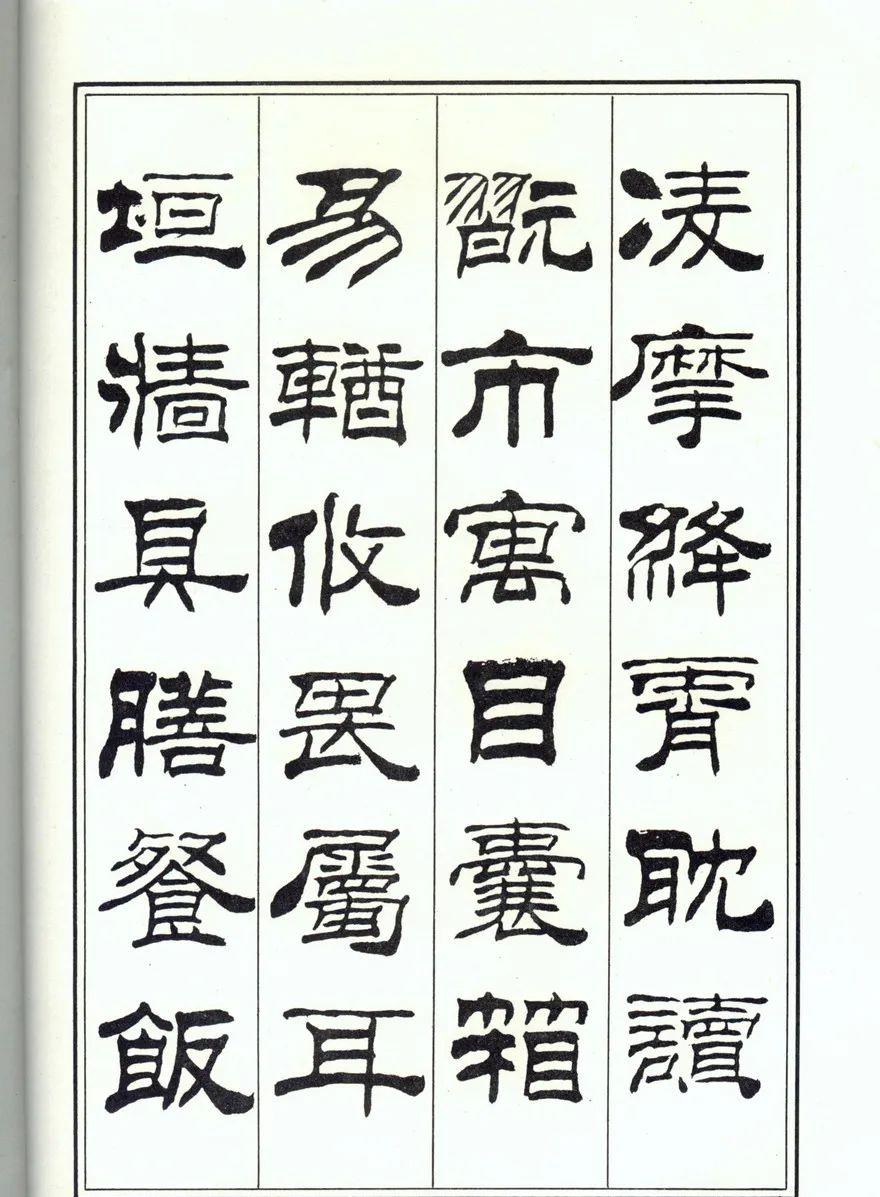 凌摩絳霄耽讀
翫市寓目囊箱
易輶攸畏屬耳
垣牆具膳餐飯